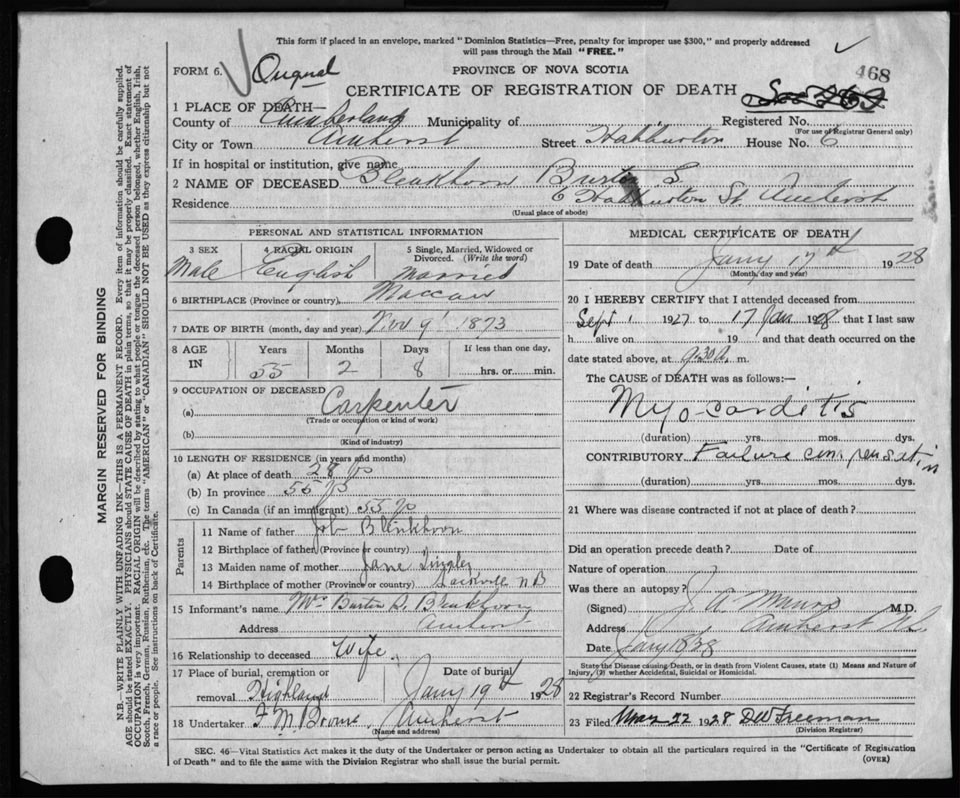 This form if placed in an envelope, marked "Dominion Statistics—Free, penalty for improper use $300," and properly addressed
will pass through the Mail "FREE."
FORM 6.
PROVINCE OF NOVA SCOTIA
468
CERTIFICATE OF REGISTRATION OF DEATH
1 PLACE OF DEATH—
County of Cumberland Municipality of
Registered No.
(For use of Registrar General only)
City or Town Amherst Street House No. 6
If in hospital or institution, give name
2 NAME OF DECEASED Bleakhorn S.
Residence 6 St Amherst
(Usual place of abode)
PERSONAL AND STATISTICAL INFORMATION
3 SEX Male
4 RACIAL ORIGIN English
5 Single, Married, Widowed or Divorced. (Write the word) Married
6 BIRTHPLACE (Province or country) Maccan
7 DATE OF BIRTH (month, day and year) Nov 9 1873
8 AGE IN
Years Months Days If less than one day,
55 2 8 hrs. or min.
9 OCCUPATION OF DECEASED
(a) Carpenter
(Trade or occupation or kind of work)
(b)
(Kind of industry)
10 LENGTH OF RESIDENCE (in years and months)
(a) At place of death 28 yrs
(b) In province 55 yrs
(c) In Canada (if an immigrant) 55 yrs
Parents
11 Name of father Job Blenkhorn
12 Birthplace of father (Province or country)
13 Maiden name of mother Jane Tingley
14 Birthplace of mother (Province or country) Sackville N B
15 Informant's name Mrs Burton S. Bleakhorn
Address Amherst
16 Relationship to deceased Wife
17 Place of burial, cremation or removal Highland
Date of burial Jany 19th 1928
18 Undertaker F. M. Brown. Amherst
(Name and address)
MEDICAL CERTIFICATE OF DEATH
19 Date of death Jany 17th 1928
(Month, day and year)
20 I HEREBY CERTIFY that I attended deceased from
Sept 1 1927 to 17 Jan 1928 that I last saw
h alive on 19 and that death occurred on the
date stated above, at 9.30 a. m.
The CAUSE of DEATH was as follows:—
Myocarditis
(duration) yrs. mos. dys.
CONTRIBUTORY Failure compensation
(duration) yrs. mos. dys.
21 Where was disease contracted if not at place of death?
Did an operation precede death? Date of
Nature of operation
Was there an autopsy?
(Signed) J. A. Munro M.D.
Address Amherst N.S.
Date Jany 18
State the Disease causing Death, or in death from Violent Causes, state (1) Means and Nature of
Injury, (2) whether Accidental, Suicidal or Homicidal.
22 Registrar's Record Number
23 Filed 22 1928 DW Freeman
(Division Registrar)
SEC. 46—Vital Statistics Act makes it the duty of the Undertaker or person acting as Undertaker to obtain all the particulars required in the "Certificate of Registration
of Death" and to file the same with the Division Registrar who shall issue the burial permit.
(OVER)
MARGIN RESERVED FOR BINDING
N.B.—WRITE PLAINLY WITH UNFADING INK—THIS IS A PERMANENT RECORD. Every item of information should be carefully supplied.
AGE should be stated EXACTLY. PHYSICIANS should STATE CAUSE OF DEATH in plain terms, so that it may be properly classified. Exact statement of
OCCUPATION is very important. RACIAL ORIGIN will be described by stating to what people or tongue the deceased person belonged, whether English, Irish,
Scotch, French, German, Russian, Ruthenian, etc. The terms "AMERICAN" or "CANADIAN" SHOULD NOT BE USED as they express citizenship but not
a race or people. See instructions on back of Certificate.